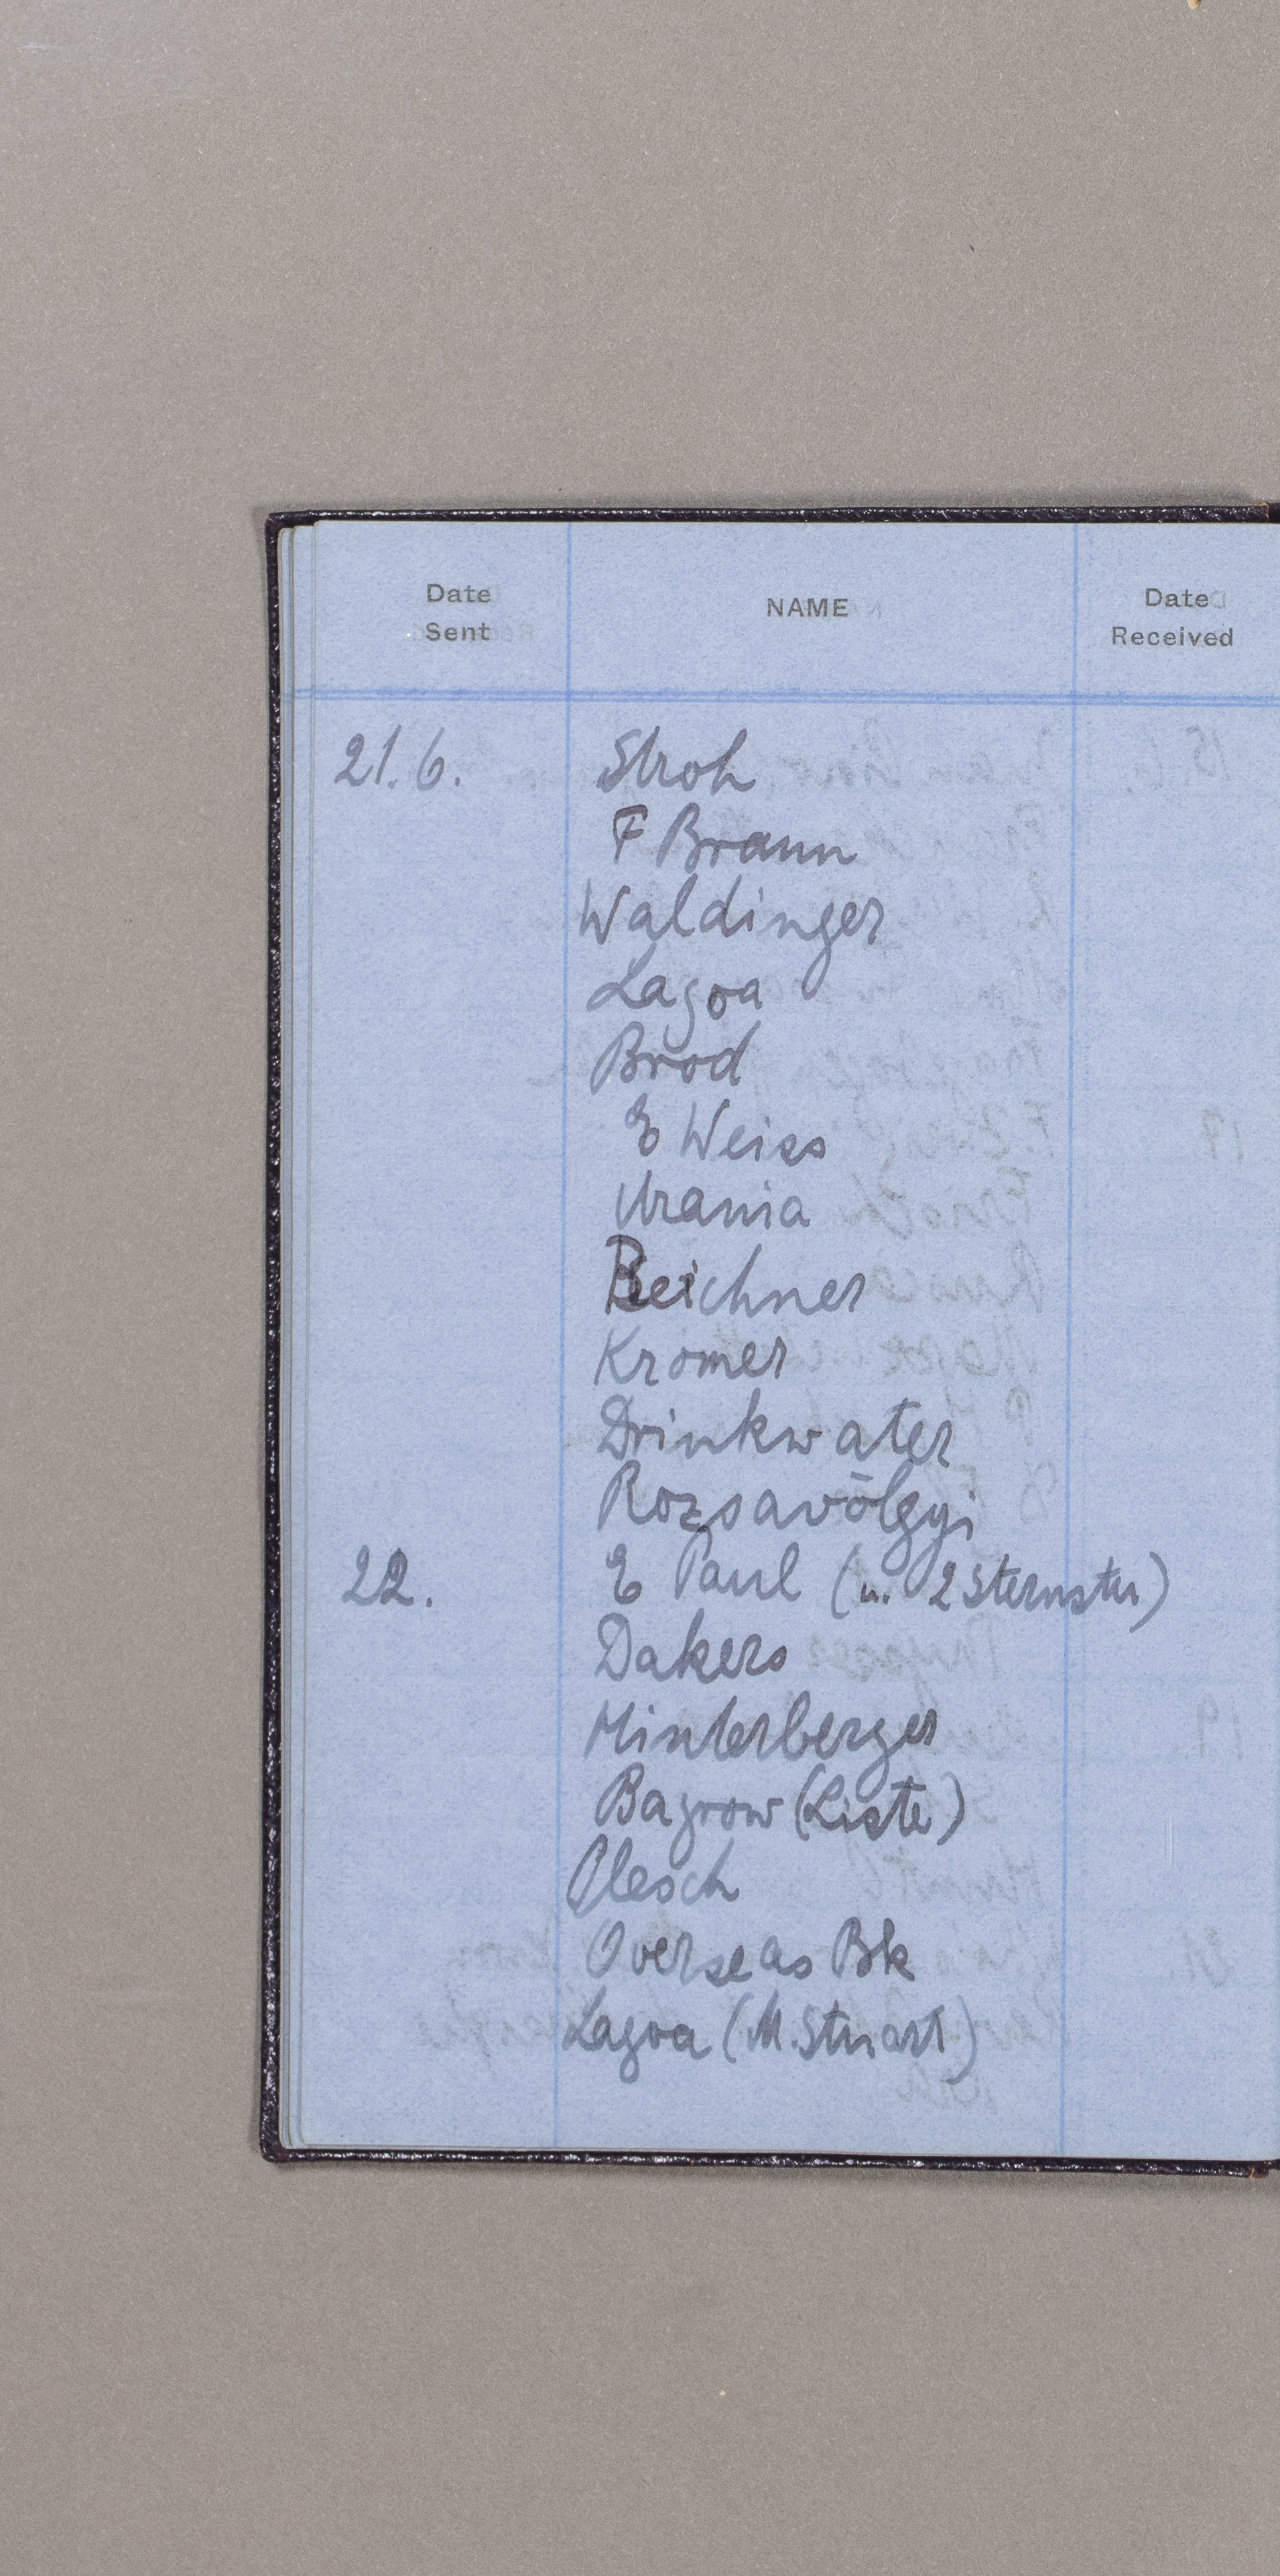 Date Sent NAME Date Received
21.6. Stroh
F Braun
Waldinger
Lagoa
Brod
E Weiss
Urania
Reichner
Kromer
Drinkwater
Rozsavölgyi
22. E Paul (u. 2 Sternstu)
Dakers
Hinterberger
Bagrow (Liste)
Plesch
Overseas Bk
Lagoa (M. Stuart)